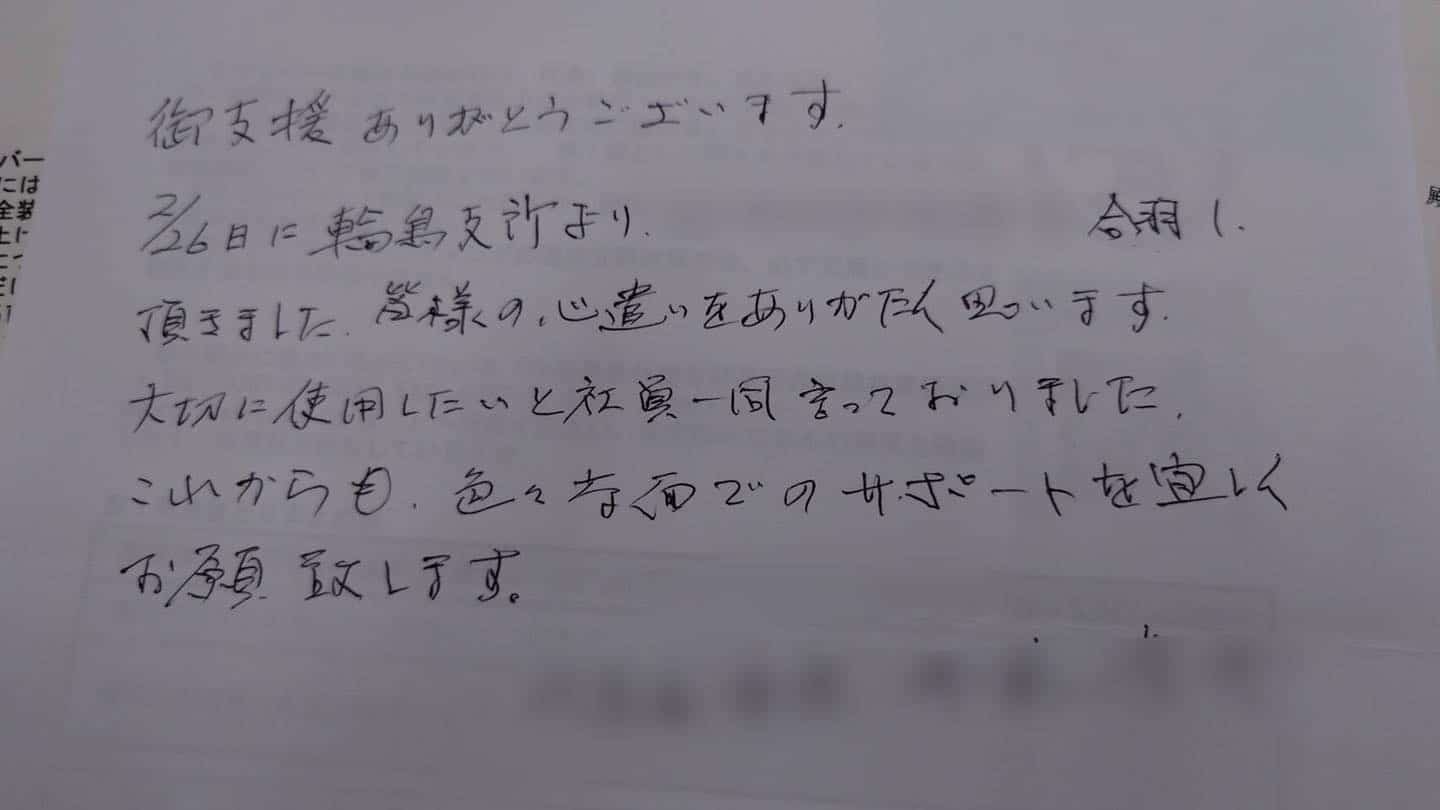 御支援ありがとうございます.
2/26日に輪島支所より. 合羽1.
頂きました. 皆様の心遣いをありがたく思っいます.
大切に使用したいと社員一同言っておりました.
これからも. 色々な面でのサポートを宜しく
お願致します。
バー
には
全装